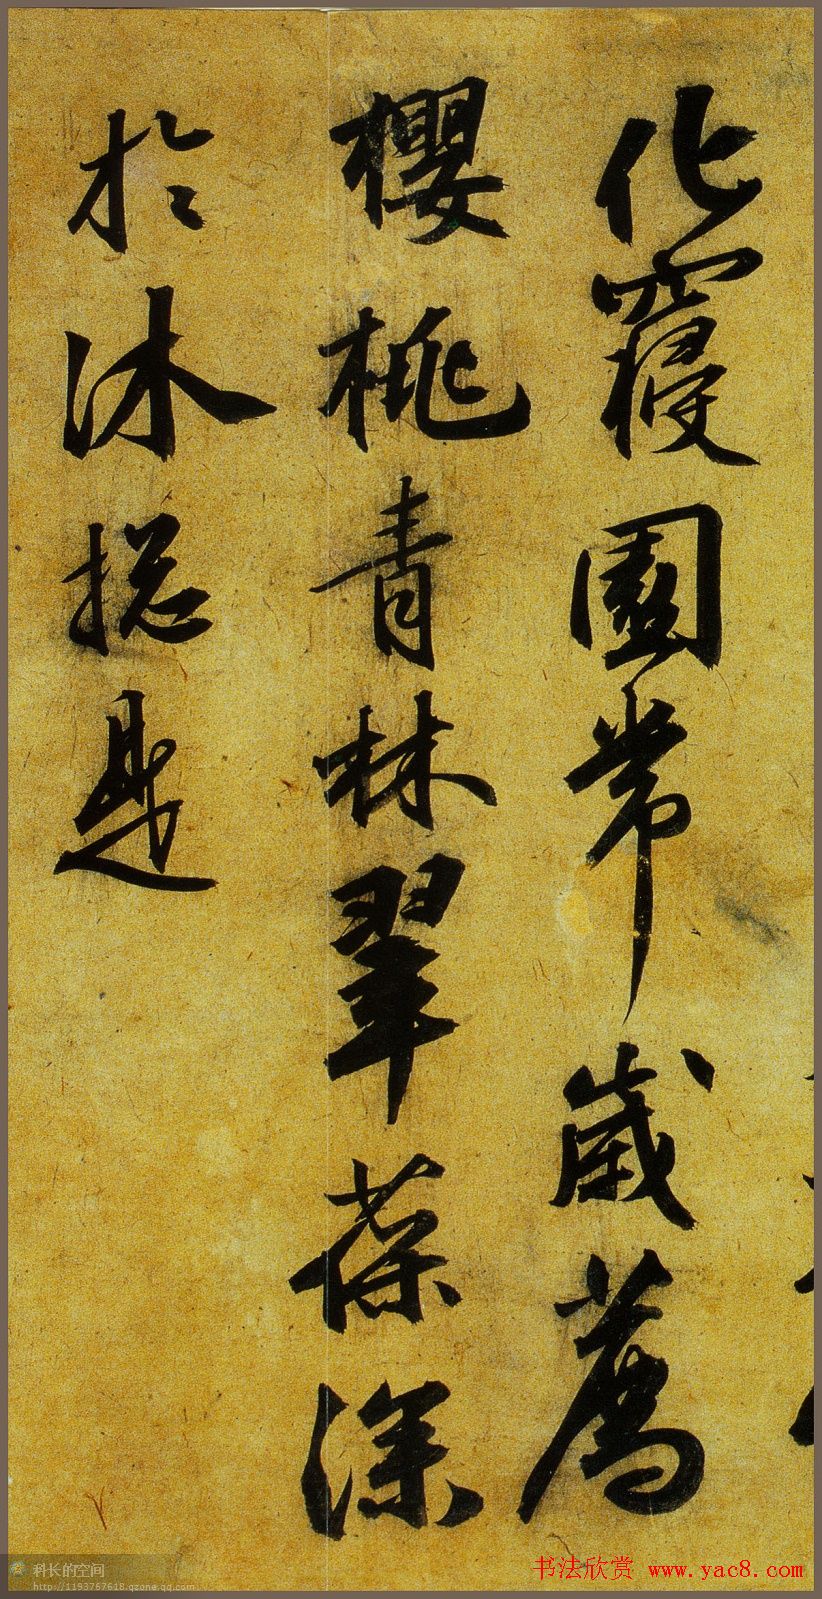 化寢園常歲薦
櫻桃青林翠葆深
於沐揔是
科长的空间
http://1193767618.qzone.qq.com
书法欣赏 www.yac8.com